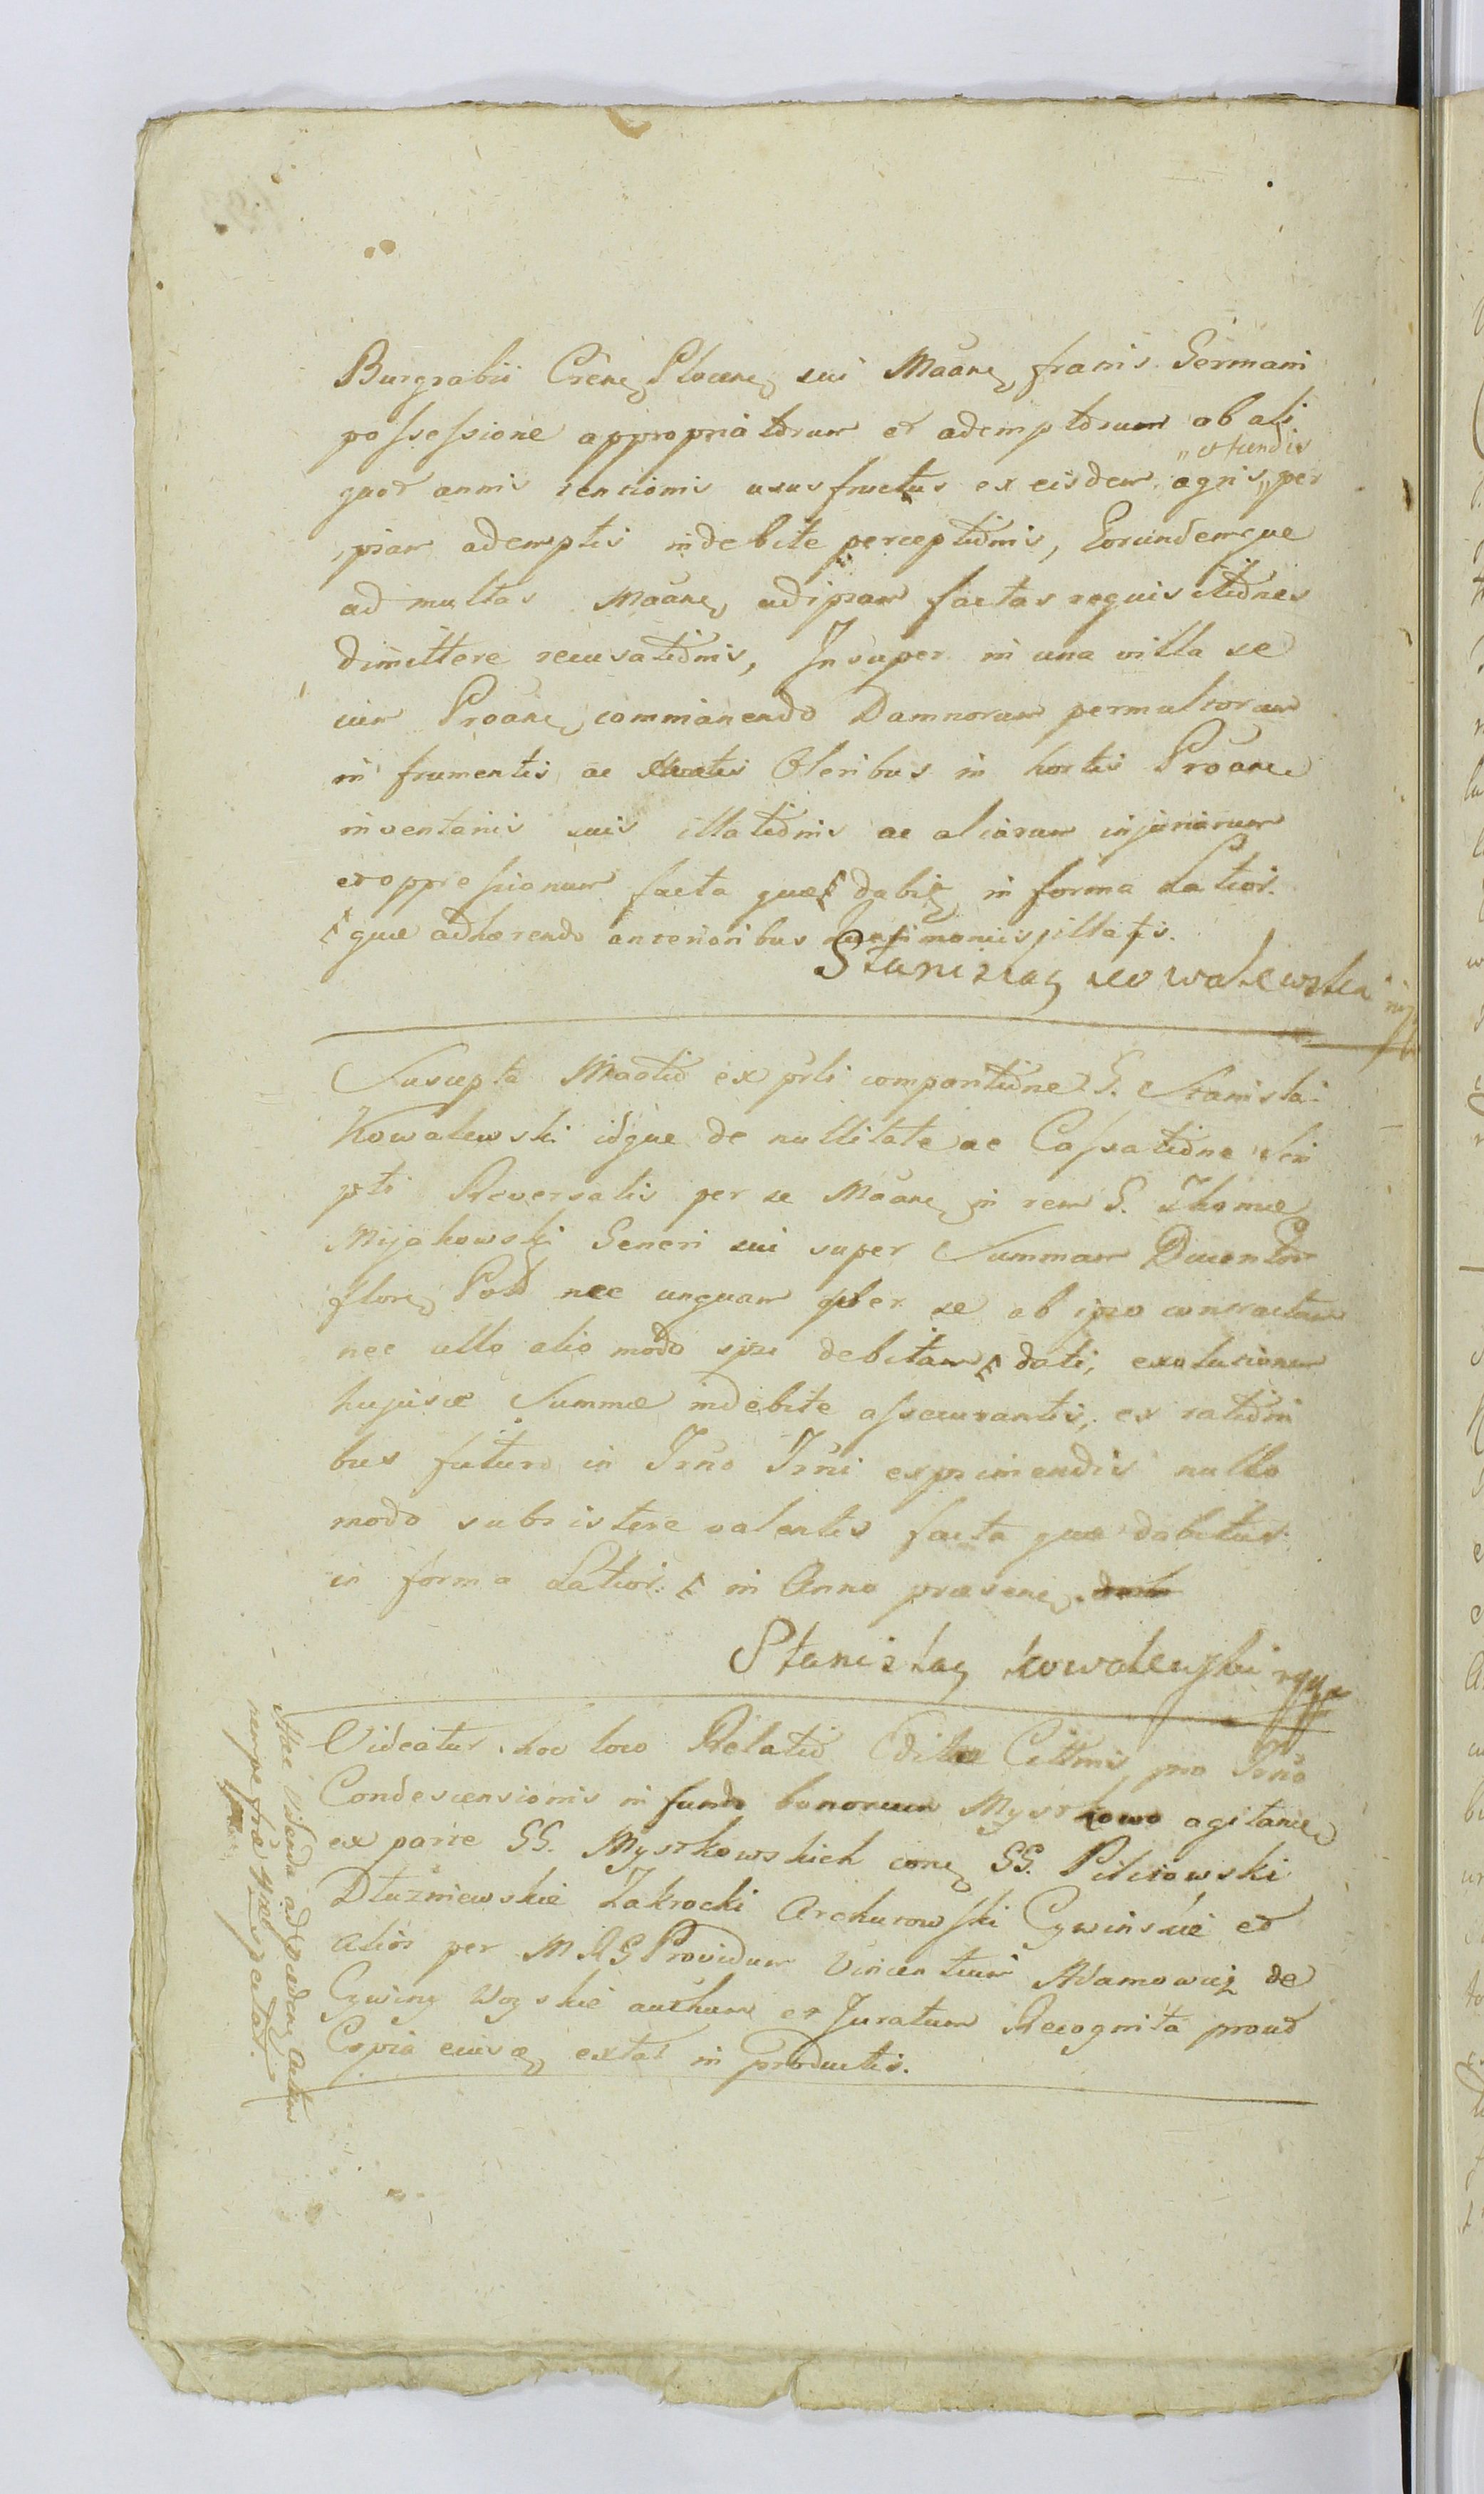 Burgrabii Crēne Plocene sui Māāne fratris Germani
possessione appropriatorum et ademptorum ab ali
„et fundis
quot annis retentionis ususfructus ex eisdem agris „ per
ipsam ademptis indebite perceptiōnis, Eorundemque
ad multas Māāne ad ipsam factas requisitiōnes
dimittere recusatiōnis, Insuper in una villa se
cum Prōāne commanendo Damnorum permultorum
in frumentis ac Oleribus in hortis Prōāne
inventariis suis illatiōnis ac aliarum injuriarum
et oppressionum facta quae dabit in forma Latiori.
que adhærendo anterioribus illatis.
Stanisław Kowalewski mp
Suscepta Māātio ex pr̄li comparitiōne G. Stanislai
Kowalewski idque de nullitate ac Cassatiōne scri
pti Reversalis per se Māāne in rem G. Thomæ
Mijakowski Generi sui super Summam Ducentor
flor Pol nec unquam per se ab ipso contractam
nec ullo alio modo ipsi debitam dati, exolutionem
hujusce Summæ indebite assecurantis, ex ratiōni
bus futuro in Jrno Jrni exprimendis nullo
modo subsistere valentis facta quæ dabitur
in forma Latiori. in Anno præsene.
Stanisław Kowalewski mpp
Videatur hoc loco Relatio Editæ Cittōnis pro Jrno
Condescensionis in fundo bonorum Mystkowo agitane
ex parte GG. Mystkowskich cone GG. Pilitowski
Dłużniewskie Zakrocki Archutowski Cywinskie et
alios per M R G Providum Vincentium Adamowicz de
Cywiny Wozskie authum et Juratum Recognita prout
Copia eiusce extat in productis.
Hæc Videnda ad Actum
nempe petat.